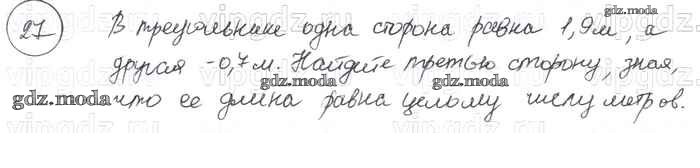 27 В треугольнике одна сторона равна 1,9м, а
другая -0,7м. Найдите третью сторону, зная,
что ее длина равна целому числу метров.
gdz.moda
gdz.moda
gdz.moda
gdz.moda
gdz.moda